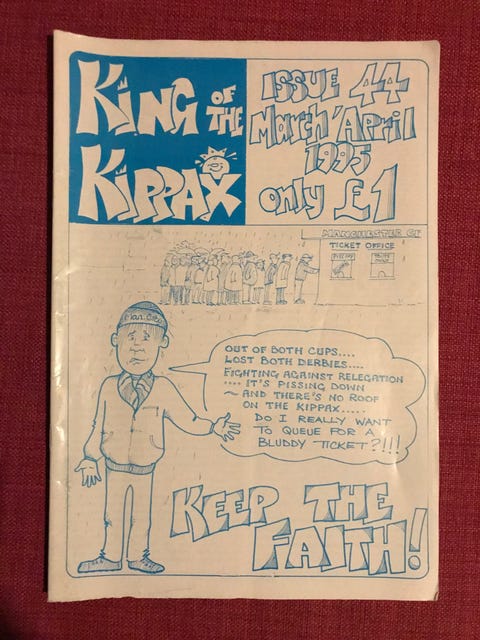 KING OF THE
KIPPAX
ISSUE 44
March/April
1995
only £1
MANCHESTER CF
TICKET OFFICE
Man. City
OUT OF BOTH CUPS....
LOST BOTH DERBIES....
FIGHTING AGAINST RELEGATION
.... IT'S PISSING DOWN
~ AND THERE'S NO ROOF
ON THE KIPPAX.....
DO I REALLY WANT
TO QUEUE FOR A
BLUDDY TICKET?!!!
KEEP THE
FAITH!